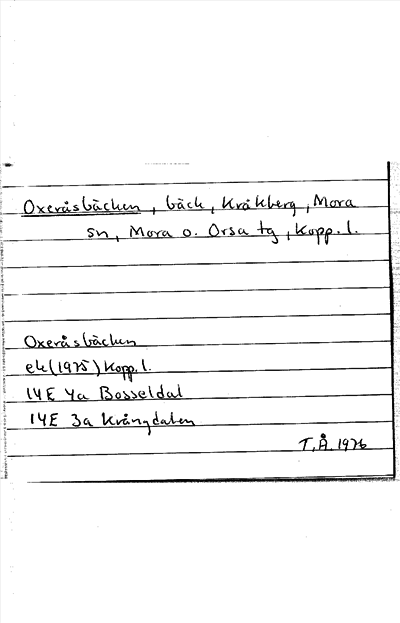 Oxeråsbäcken, bäck, Kråkberg, Mora
sn, Mora o. Orsa tg, Kopp. l.
Oxeråsbäcken
ek (1975) Kopp. l.
14E 4a Bosseldal
14E 3a Krångdalen
T.Å. 1976